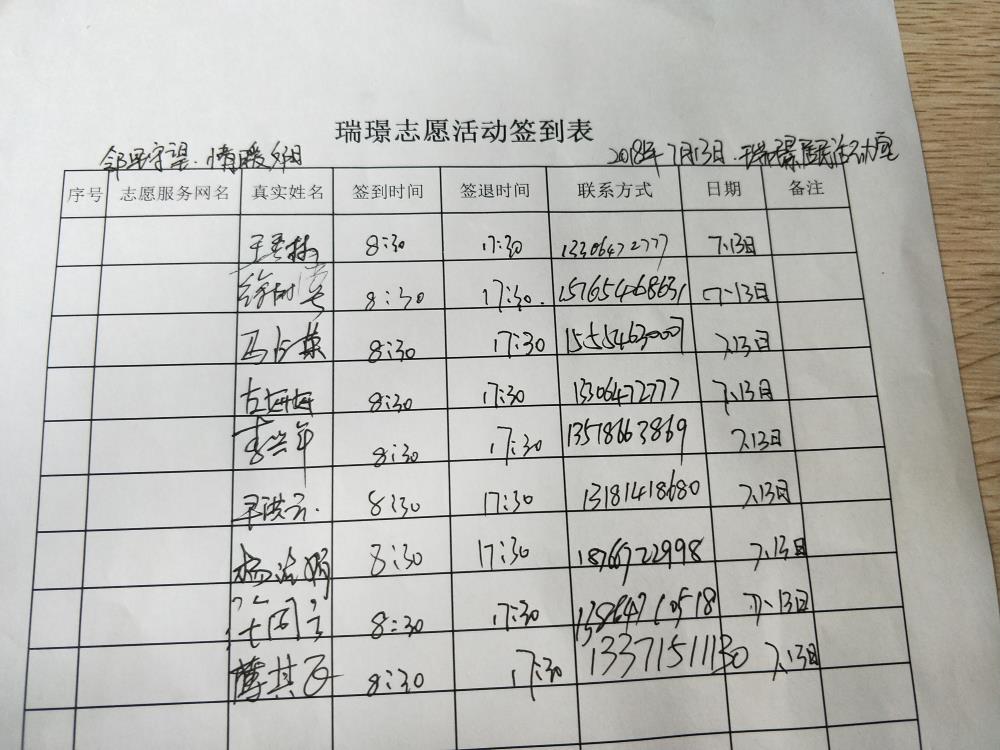 瑞璟志愿活动签到表
邻里守望·情暖夕阳 2018年7月13日
序号 志愿服务网名 真实姓名 签到时间 签退时间 联系方式 日期 备注
8:30 17:30 13306472777 7.13日
8:30 17:30. 157654068631 7.13日
马占英 8:30 17:30 15554630007 7.13日
8:30 17:30 13306472777 7.13日
李兴年 8:30 17:30 13518663869 7.13日
洪云. 8:30 17:30 13181418680 7.13日
杨洁娟 8:30 17:30 18766722998 7.13日
8:30 17:30 13864710518 7.13日
其 8:30 17:30 13371511130 7.13日